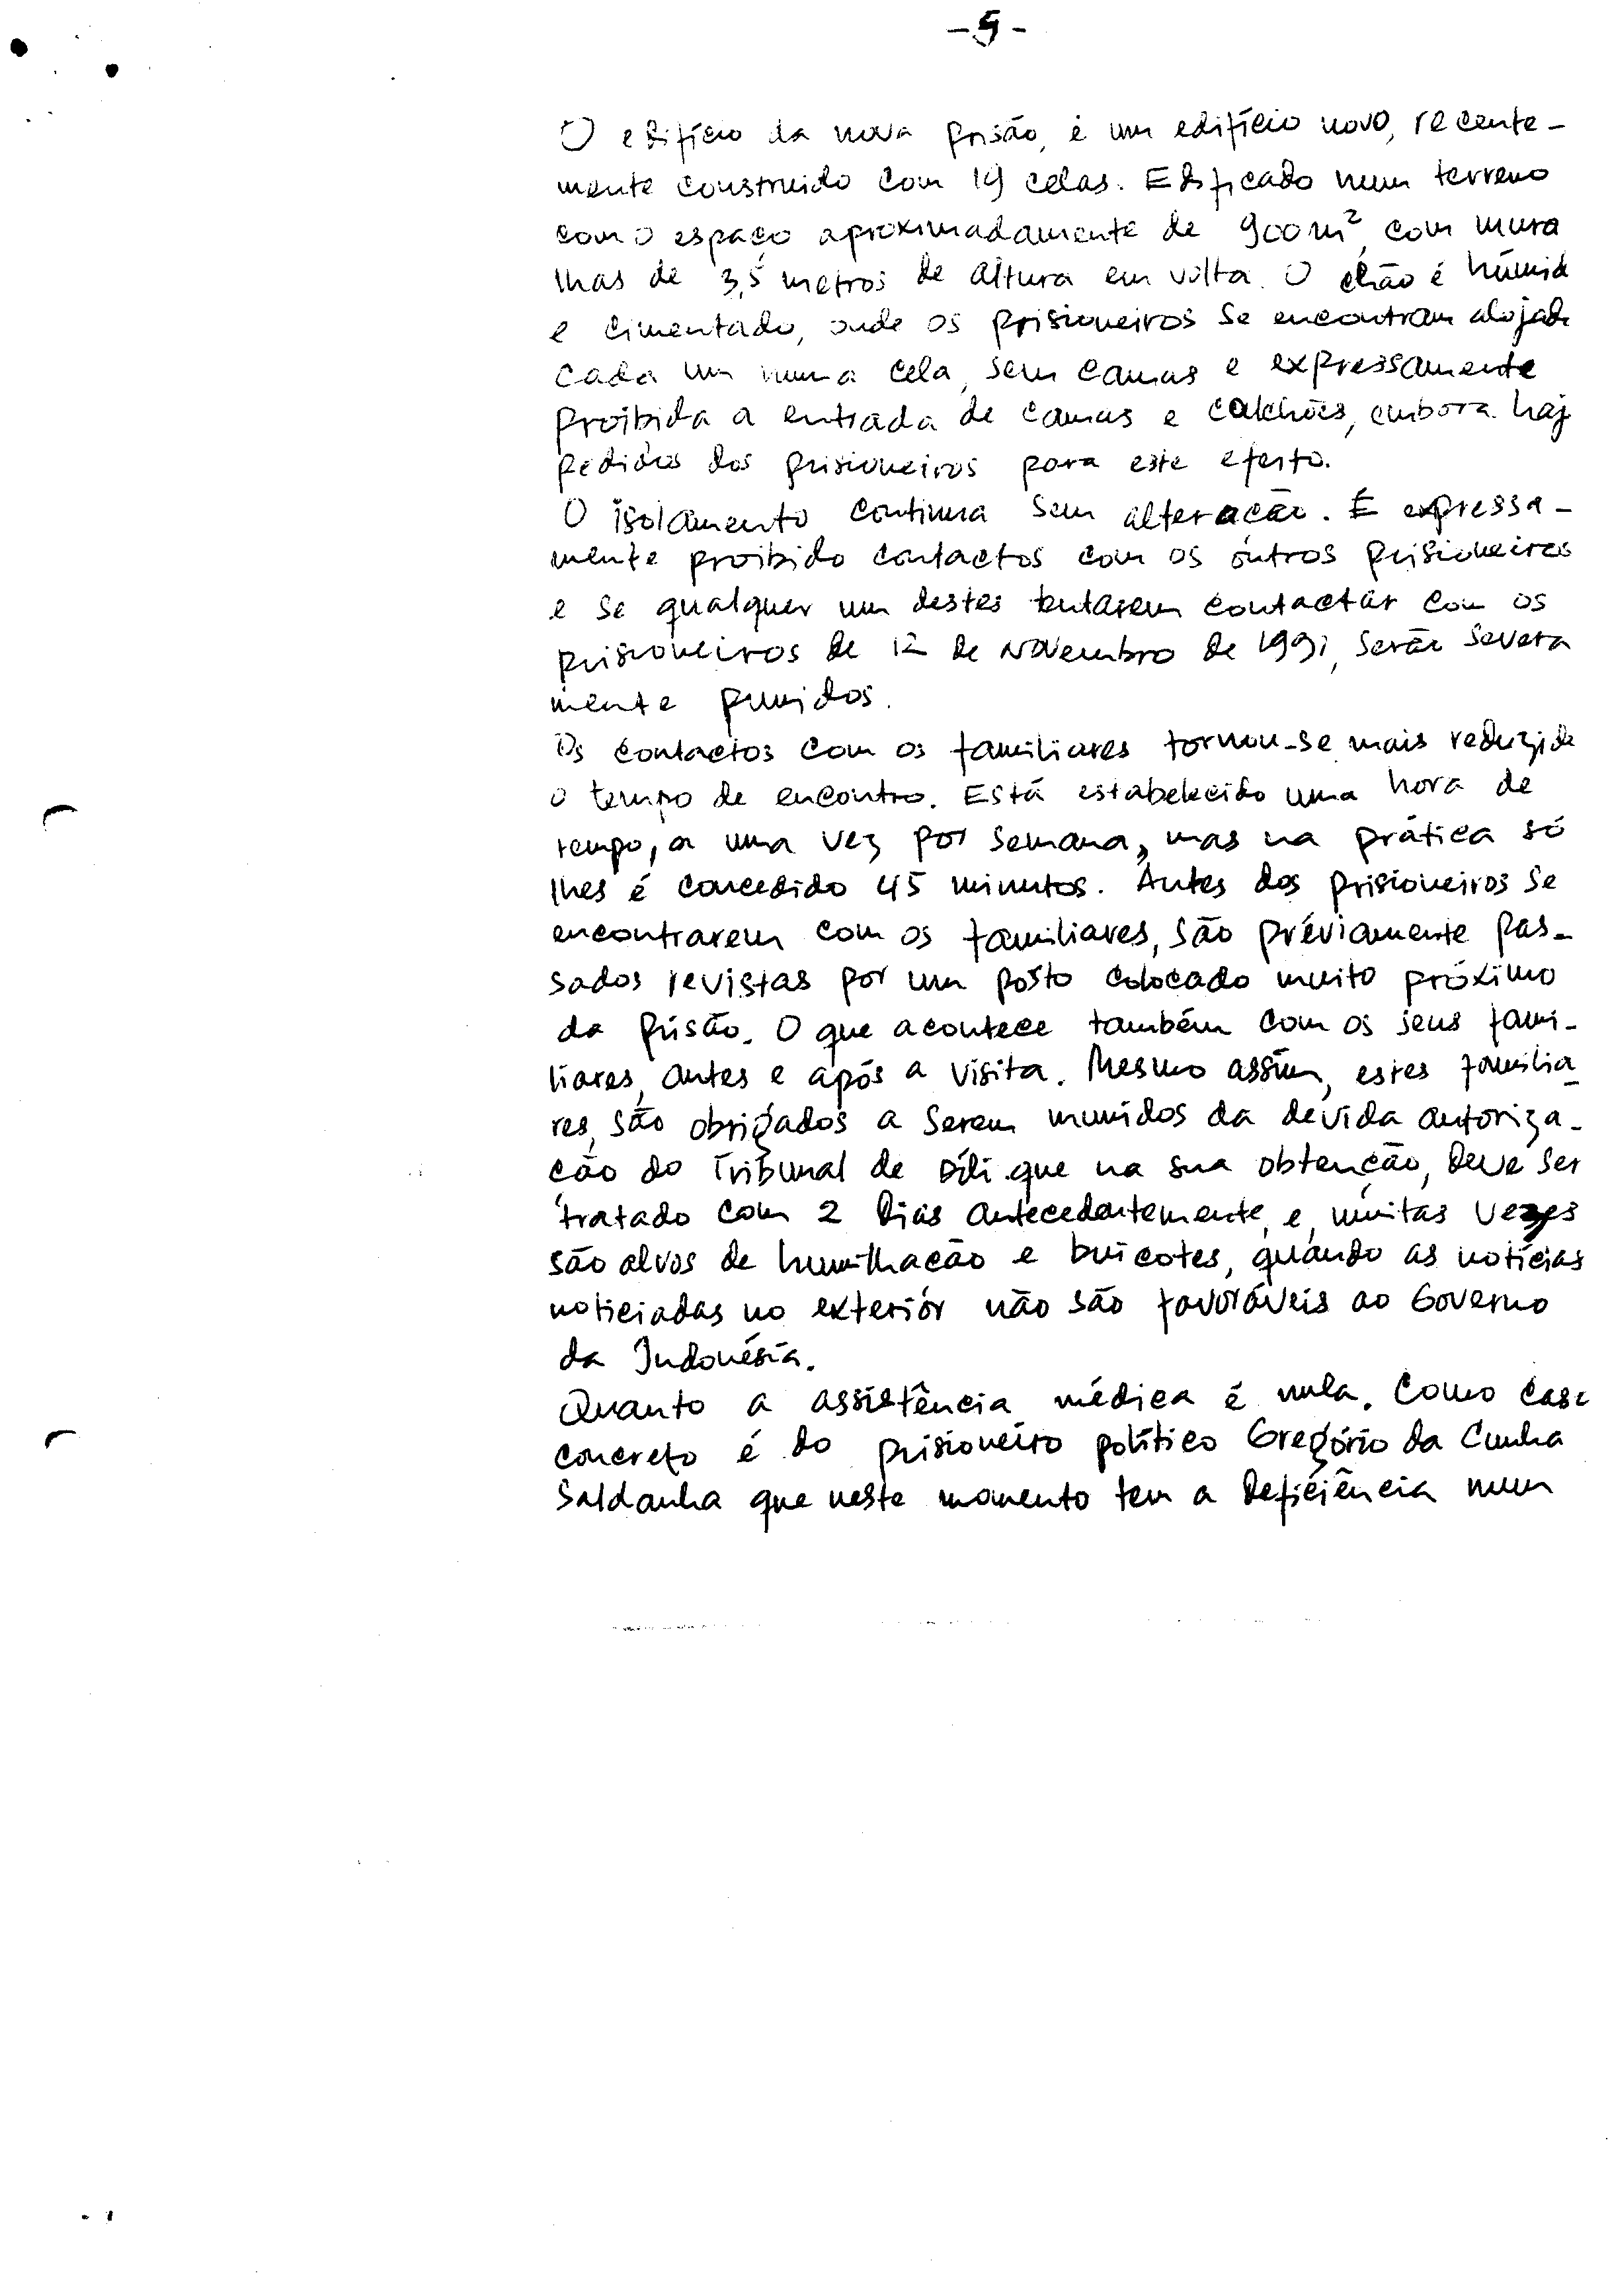 -5-
O edifício da nova prisão, é um edifício novo, recente-
mente construido com 19 celas. Edificado num terreno
com o espaço aproximadamente de 900m², com mura
lhas de 3,5 metros de altura em volta. O chão é húmid
e cimentado, onde os prisioneiros se encontram alojad
cada um numa cela, sem camas e expressamente
proibida a entrada de camas e colchões, embora haj
pedidos dos prisioneiros para este efeito.
O isolamento continua sem alteração. É expressa-
mente proibido contactos com os outros prisioneiros
e se qualquer um destes tentarem contactar com os
prisioneiros de 12 de Novembro de 1991, serão severa
mente punidos.
Os contactos com os familiares tornou-se mais reduzido
o tempo de encontro. Está estabelecido uma hora de
tempo, a uma vez por semana, mas na prática só
lhes é concedido 45 minutos. Antes dos prisioneiros se
encontrarem com os familiares, são préviamente pas-
sados revistas por um posto colocado muito próximo
da prisão. O que acontece também com os seus fami-
liares, antes e após a visita. Mesmo assim, estes familia-
res, são obrigados a serem munidos da devida autoriza-
ção do Tribunal de Díli que na sua obtenção, deve ser
tratado com 2 dias antecedentemente, e, muitas vezes
são alvos de humilhação e buicotes, quando as notícias
noticiadas no exteriór não são favoráveis ao Governo
da Indonésia.
Quanto a assistência médica é nula. Como caso
concreto é do prisioneiro político Gregório da Cunha
Saldanha que neste momento tem a deficiência num